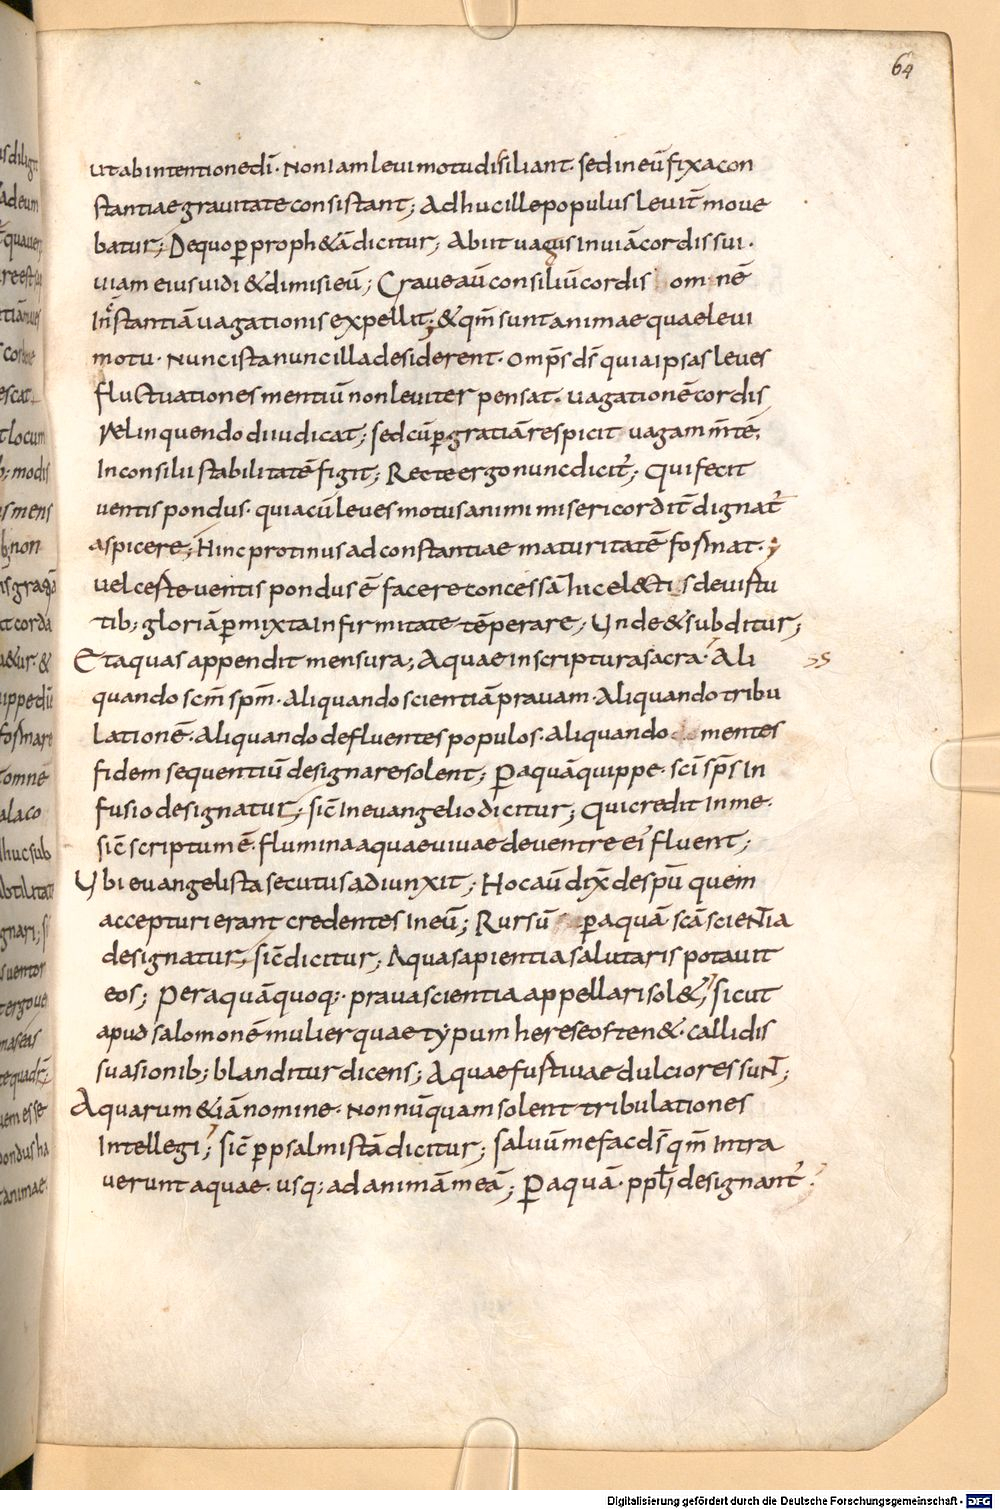 64
ut ab intentione dī· Non iam levi motu dissiliant· sed in eū fixa con
stantiae gravitate consistant; Adhuc ille populus levit̄ move
batur; De quo ꝑ proph&ā dicitur; Abiit vagus in viā cordis sui·
viam eius vidi & dimisi eū; Grave aū consiliū cordis omnē
Instantiā vagationis expellit; & qm̄ sunt animae quae levi
motu· Nunc ista nunc illa desiderent· omps̄ ds̄ quia ipsas leves
fluctuationes mentiū non leviter pensat· vagationē cordis
Relinquendo diiudicat; sed cū ꝑ gratiā respicit vagam m̄tē,
In consilii stabilitatē figit; Recte ergo nunc dicit̄; Qui fecit
ventis pondus· quia cū leves motus animi misericordit̄ dignat̄
aspicere; Hinc protinus ad constantiae maturitatē format·;
vel certe ventis pondus ē facere concessā hic el&tis de virtu
tib; gloriā ꝑmixta Infirmitate tēperare; Unde & subditur;
Et aquas appendit mensura; Aquae in scriptura sacra· Ali
quando scm̄ spm̄· Aliquando scientiā pravam· Aliquando tribu
Lationē· Aliquando defluentes populos· Aliquando mentes
fidem sequentiū designare solent; Ꝑ aquā quippe· sci sps̄ In
fusio designatur, sic̄ In evangelio dicitur; Qui credit In me·
sic̄ scriptum ē· flumina aquae vivae de ventre ei' fluent;
Ubi evangelista secutus adiunxit; Hoc aū dix̄ de spū quem
accepturi erant credentes In eū; Rursū ꝑ aquā scā scientia
designatur, sic̄ dicitur; Aqua sapientia salutaris potavit
eos; Per aquā quoq;· prava scientia appellari sol&, sicut
apud salomonē mulier quae typum herese os ten&· callidis
suasionib; blanditur dicens; Aquae furtivae dulciores sunt;
Aquarum &iā nomine· Non nūquam solent tribulationes
Intellegi; sic̄ ꝑ psalmistā dicitur; salvū me fac ds̄ qm̄ Intra
verunt aquae· usq; ad animā meā; Ꝑ aquā· ppłi designant̄·
Digitalisierung gefördert durch die Deutsche Forschungsgemeinschaft - DFG